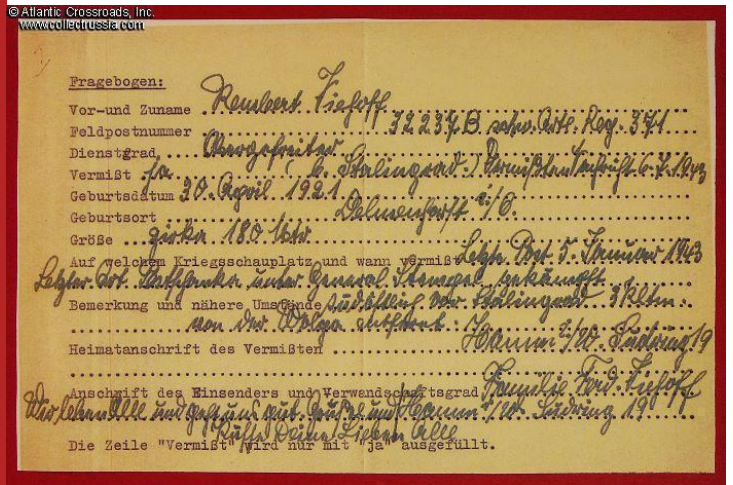 © Atlantic Crossroads, Inc.
www.collectrussia.com
Fragebogen:
Vor-und Zuname Rembert Fiehoff
Feldpostnummer 32237B schw. Artl. Reg. 371
Dienstgrad Obergefreiter
Vermißt ja (b. Stalingrad) 6.7.1943
Geburtsdatum 20. April 1921
Geburtsort Delmenhorst i/O.
Größe zirka 180 mtr
Auf welchem Kriegsschauplatz und wann vermißt Letzte Post 5. Januar 1943
Letzter Ort unter General Stempel gekämpft
Bemerkung und nähere Umstände südöstlich vor Stalingrad 3 Kltm.
von der Wolga entfernt.
Heimatanschrift des Vermißten Hamm i/W. Südring 19
Anschrift des Einsenders und Verwandschaftsgrad Familie Ferd. Fiehoff
Wir leben Alle und geht uns gut. Grüße und Hamm i/W. Südring 19
Küsse Deine Lieben Alle
Die Zeile "Vermißt" wird nur mit "ja" ausgefüllt.